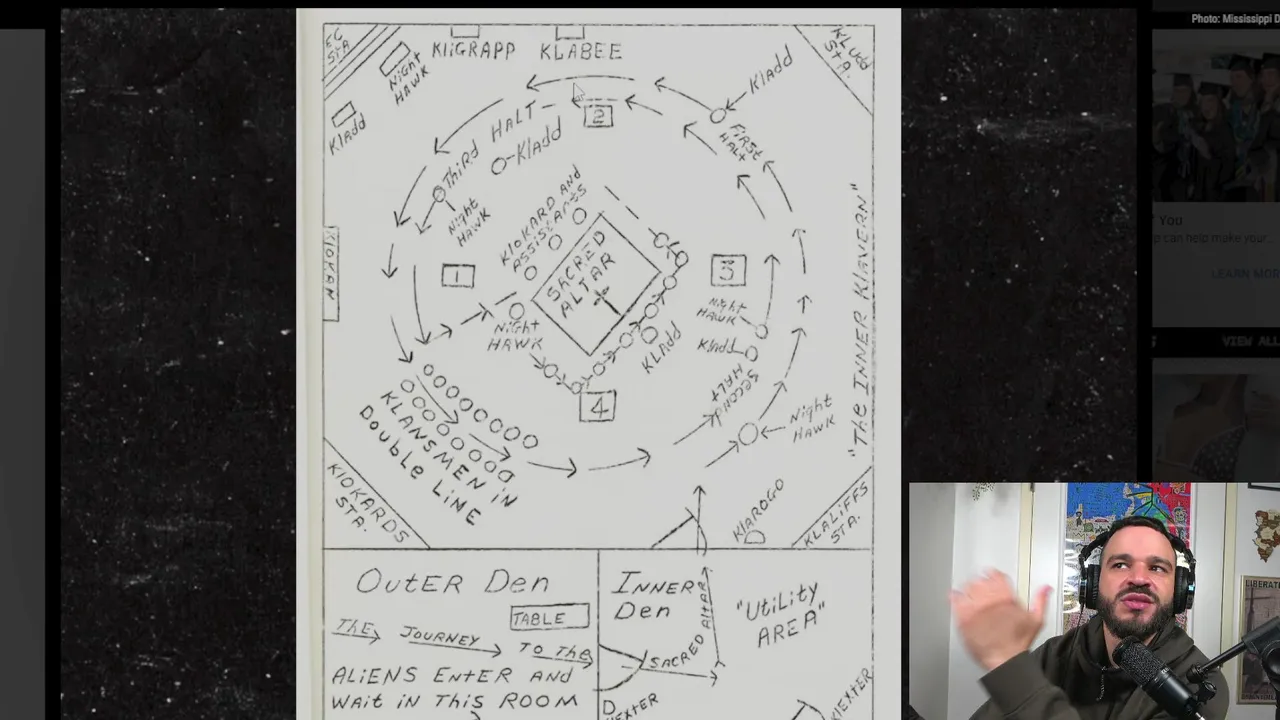 Photo: Mississippi D
EC
STA
Night
HAWK
KliGRAPP
KLABEE
KLUDD
STA.
Kladd
Kladd
FIRST
HALT
2
THIRD HALT
Kladd
Night
HAWK
KloKARD AND
ASSISTANTS
SACRED
ALTAR
1
3
KloKAN
Night
HAWK
Night
HAWK
Kladd
KLADD
SECOND
HALT
4
Night
HAWK
"THE INNER KLAVERN"
KLANSMEN IN
DOUBLE LINE
KloKARDS
STA.
KlAROGO
KLALIFFS
STA.
You
can help make your
LEARN MOR
VIEW ALL
LIBERAT
OUTER DEN
TABLE
THE JOURNEY TO THE
ALIENS ENTER AND
WAIT IN THIS ROOM
INNER
DEN
SACRED ALTAR
"UTiLiTY
AREA"
KlEXTER